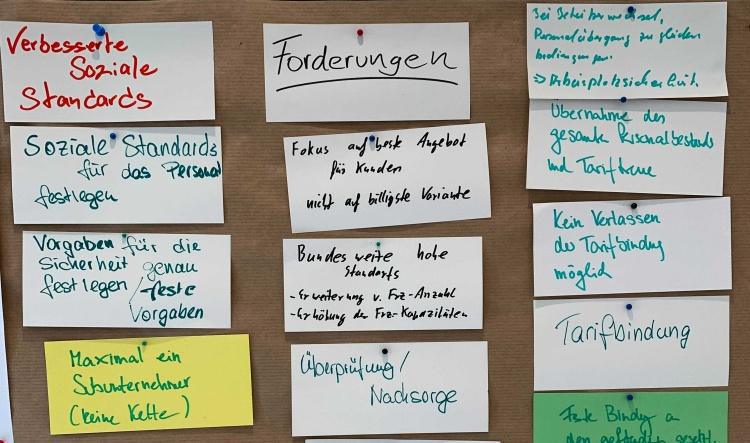 Verbesserte
Soziale
Standards
Soziale Standards
für das Personal
festlegen
Vorgaben für die
Sicherheit genau
festlegen / feste
Vorgaben
Maximal ein
Subunternehmer
(keine Kette)
Forderungen
Fokus auf beste Angebot
für Kunden
nicht auf billigste Variante
Bundesweite hohe
Standorts
- Erweiterung v. Frz-Anzahl
- Erhöhung der Frz-Kapazitäten
Überprüfung/
Nachsorge
Bei Betreiberwechsel,
Personalübergang zu gleichen
bedingungen.
=> Arbeitsplatzsicherheit.
Übernahme des
gesamten Personalbestands
und Tariftreue
Kein Verlassen
der Tarifbindung
möglich
Tarifbindung
Feste
an
den